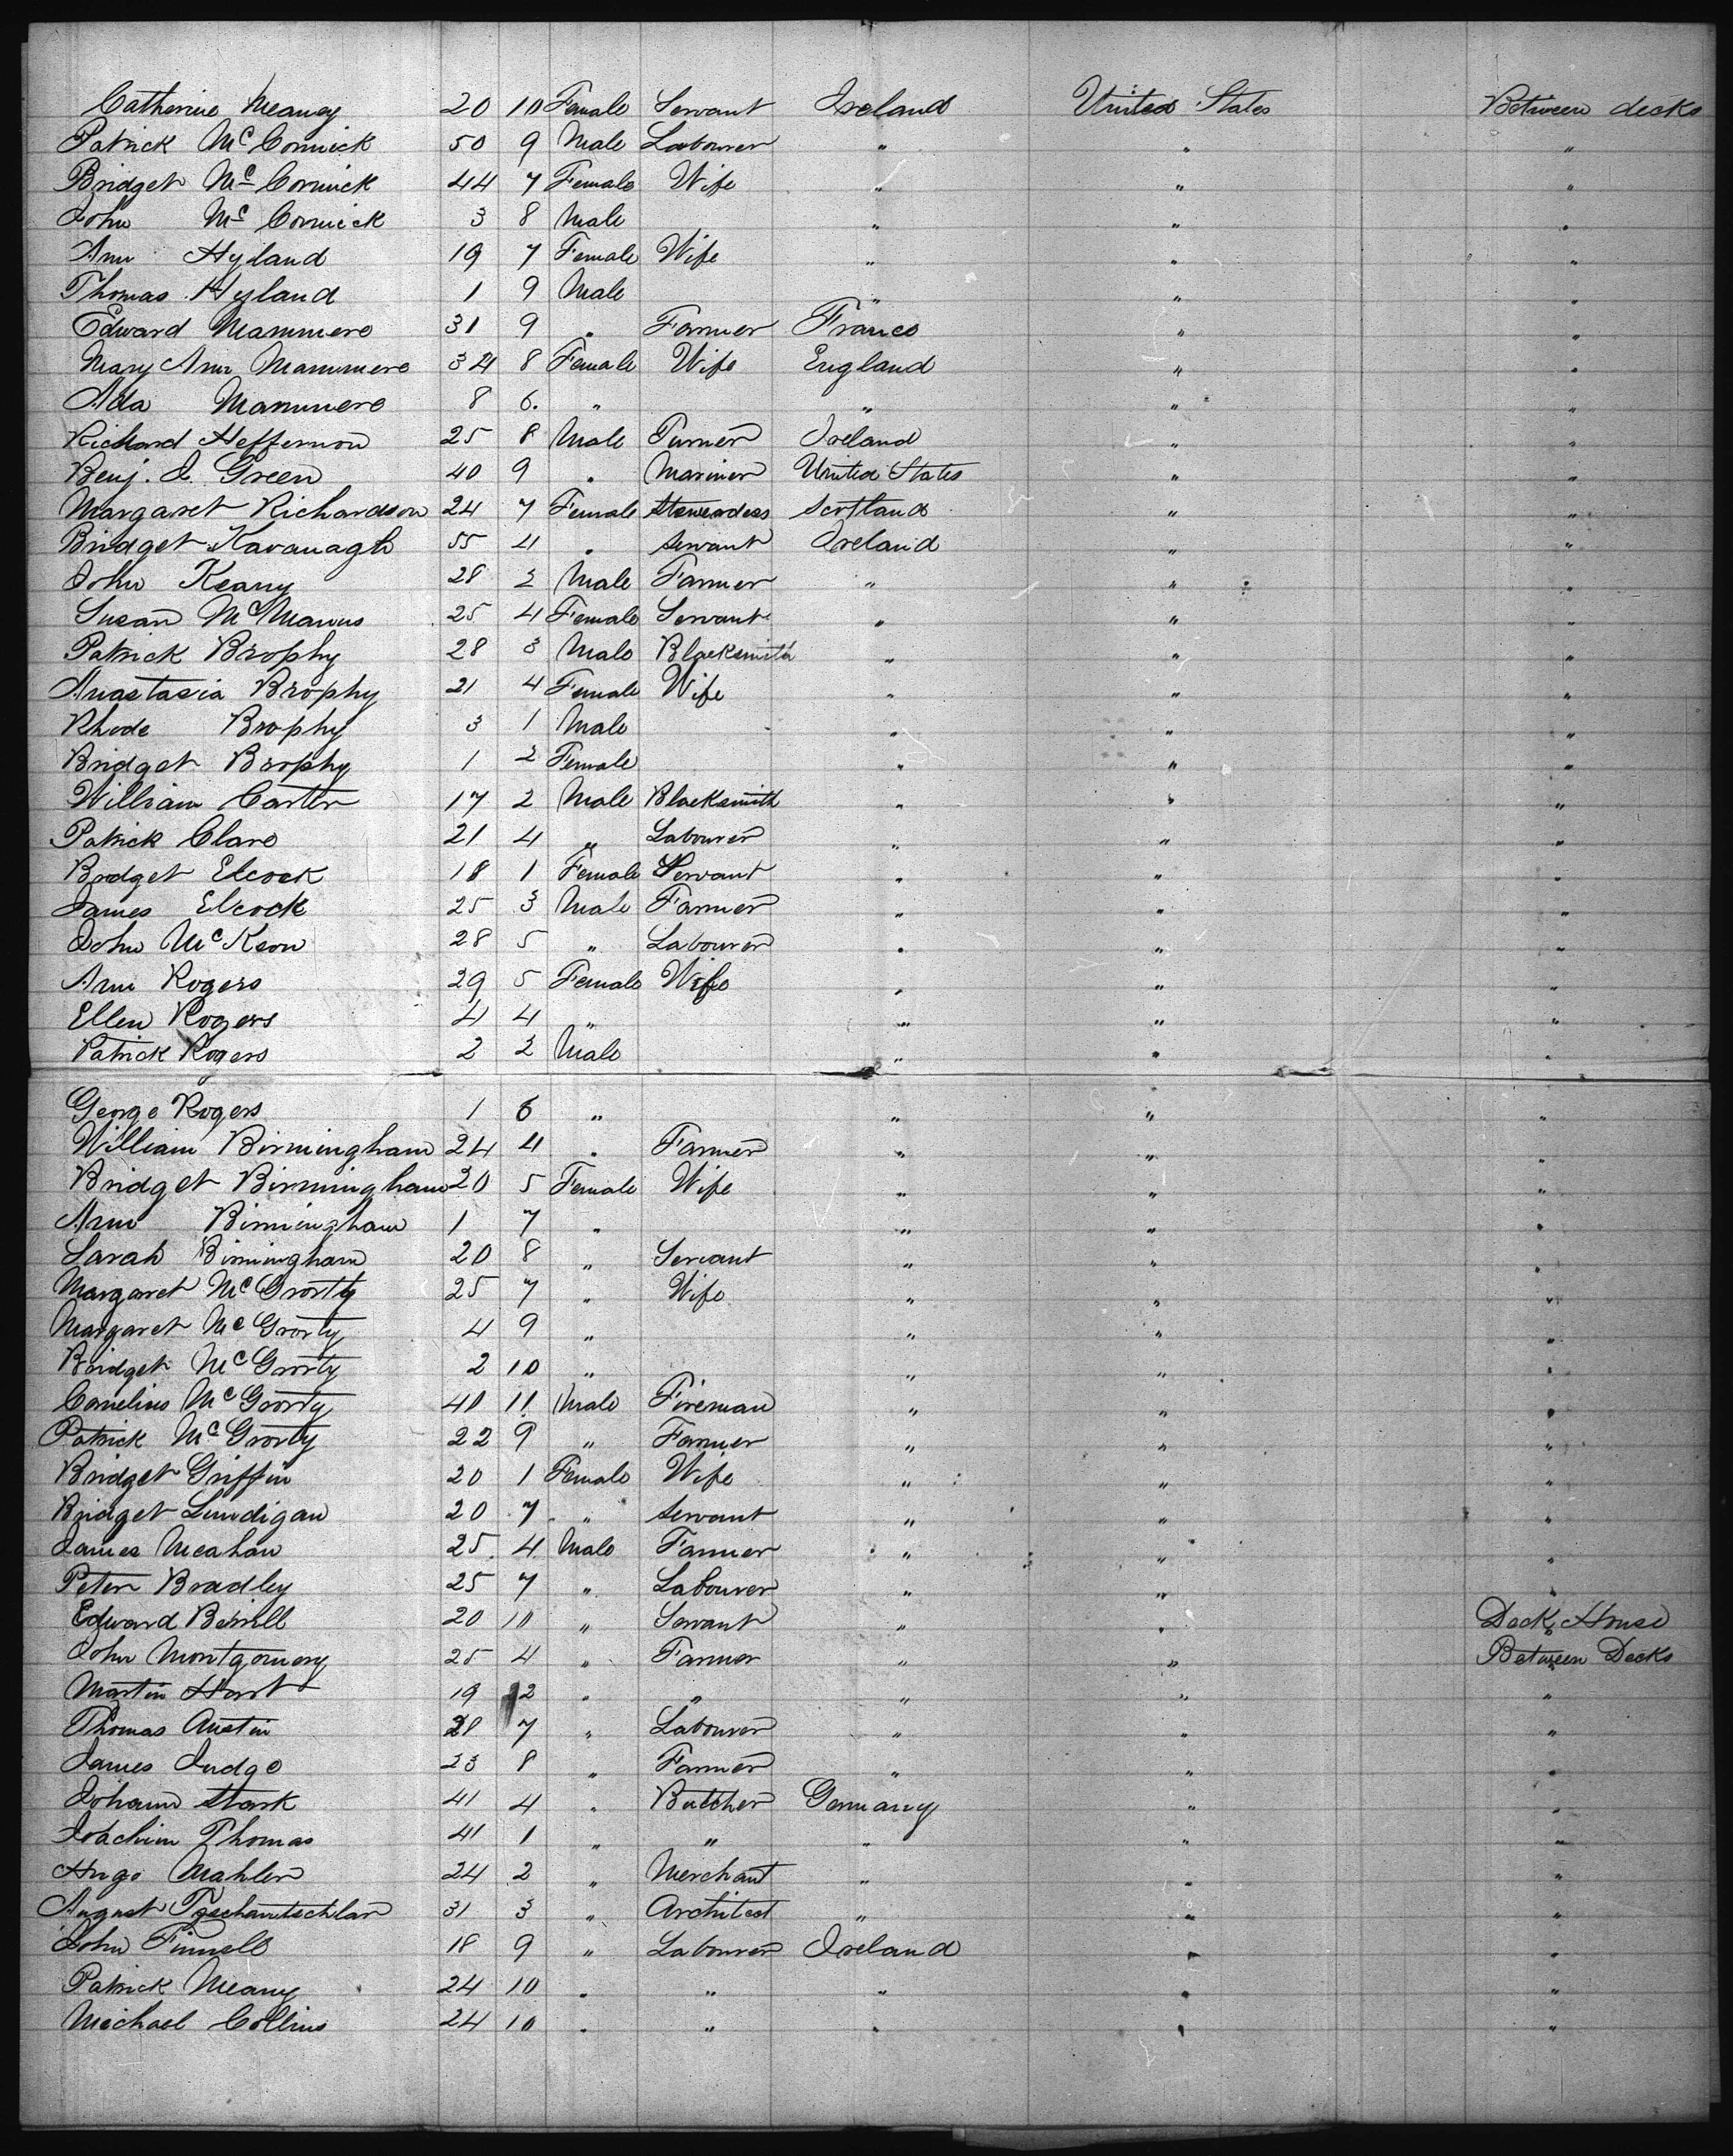 Catherine Meaney 20 10 Female Servant Ireland United States Between decks
Patrick McCormick 50 9 Male Labourer " " "
Bridget McCormick 44 7 Female Wife " " "
John McCormick 3 8 Male " " "
Ann Hyland 19 7 Female Wife " " "
Thomas Hyland 1 9 Male " " "
Edward Mammere 31 9 " Farmer France " "
Mary Ann Mammere 34 8 Female Wife England " "
Ada Mammere 8 6. " " " "
Richard Heffernon 25 8 Male Turner Ireland " "
Benj. J. Green 40 9 " Mariner United States " "
Margaret Richardson 24 7 Female Stewardess Scotland " "
Bridget Kavanagh 55 4 " Servant Ireland " "
John Keany 28 2 Male Farmer " " "
Susan McManus 25 4 Female Servant " " "
Patrick Brophy 28 3 Male Blacksmith " " "
Anastasia Brophy 21 4 Female Wife " " "
Rhode Brophy 3 1 Male " " "
Bridget Brophy 1 2 Female " " "
William Carter 17 2 Male Blacksmith " " "
Patrick Clare 21 4 " Labourer " " "
Bridget Elcock 18 1 Female Servant " " "
James Elcock 25 3 Male Farmer " " "
John McKeon 28 5 " Labourer " " "
Ann Rogers 29 5 Female Wife " " "
Ellen Rogers 4 4 " " " "
Patrick Rogers 2 2 Male " " "
George Rogers 1 6 " " " "
William Birmingham 24 4 " Farmer " " "
Bridget Birmingham 20 5 Female Wife " " "
Ann Birmingham 1 7 " " " "
Sarah Birmingham 20 8 " Servant " " "
Margaret McGrorty 25 7 " Wife " " "
Margaret McGrorty 4 9 " " " "
Bridget McGrorty 2 10 " " " "
Cornelius McGrorty 40 11 Male Fireman " " "
Patrick McGrorty 22 9 " Farmer " " "
Bridget Griffin 20 1 Female Wife " " "
Bridget Lundigan 20 7 " Servant " " "
James Meahan 25 4 Male Farmer " " "
Peter Bradley 25 7 " Labourer " " "
Edward Berrill 20 10 " Servant " " Deck House
John Montgomery 25 4 " Farmer " " Between Decks
Martin Hart 19 2 " " " " "
Thomas Austin 28 7 " Labourer " " "
James Judge 23 8 " Farmer " " "
Johann Stark 41 4 " Butcher Germany " "
Joachim Thomas 41 1 " " " " "
Hugo Mahler 24 2 " Merchant " " "
August 31 3 " Architect " " "
John Finnell 18 9 " Labourer Ireland " "
Patrick Meany 24 10 " " " " "
Michael Collins 24 10 " " " " "